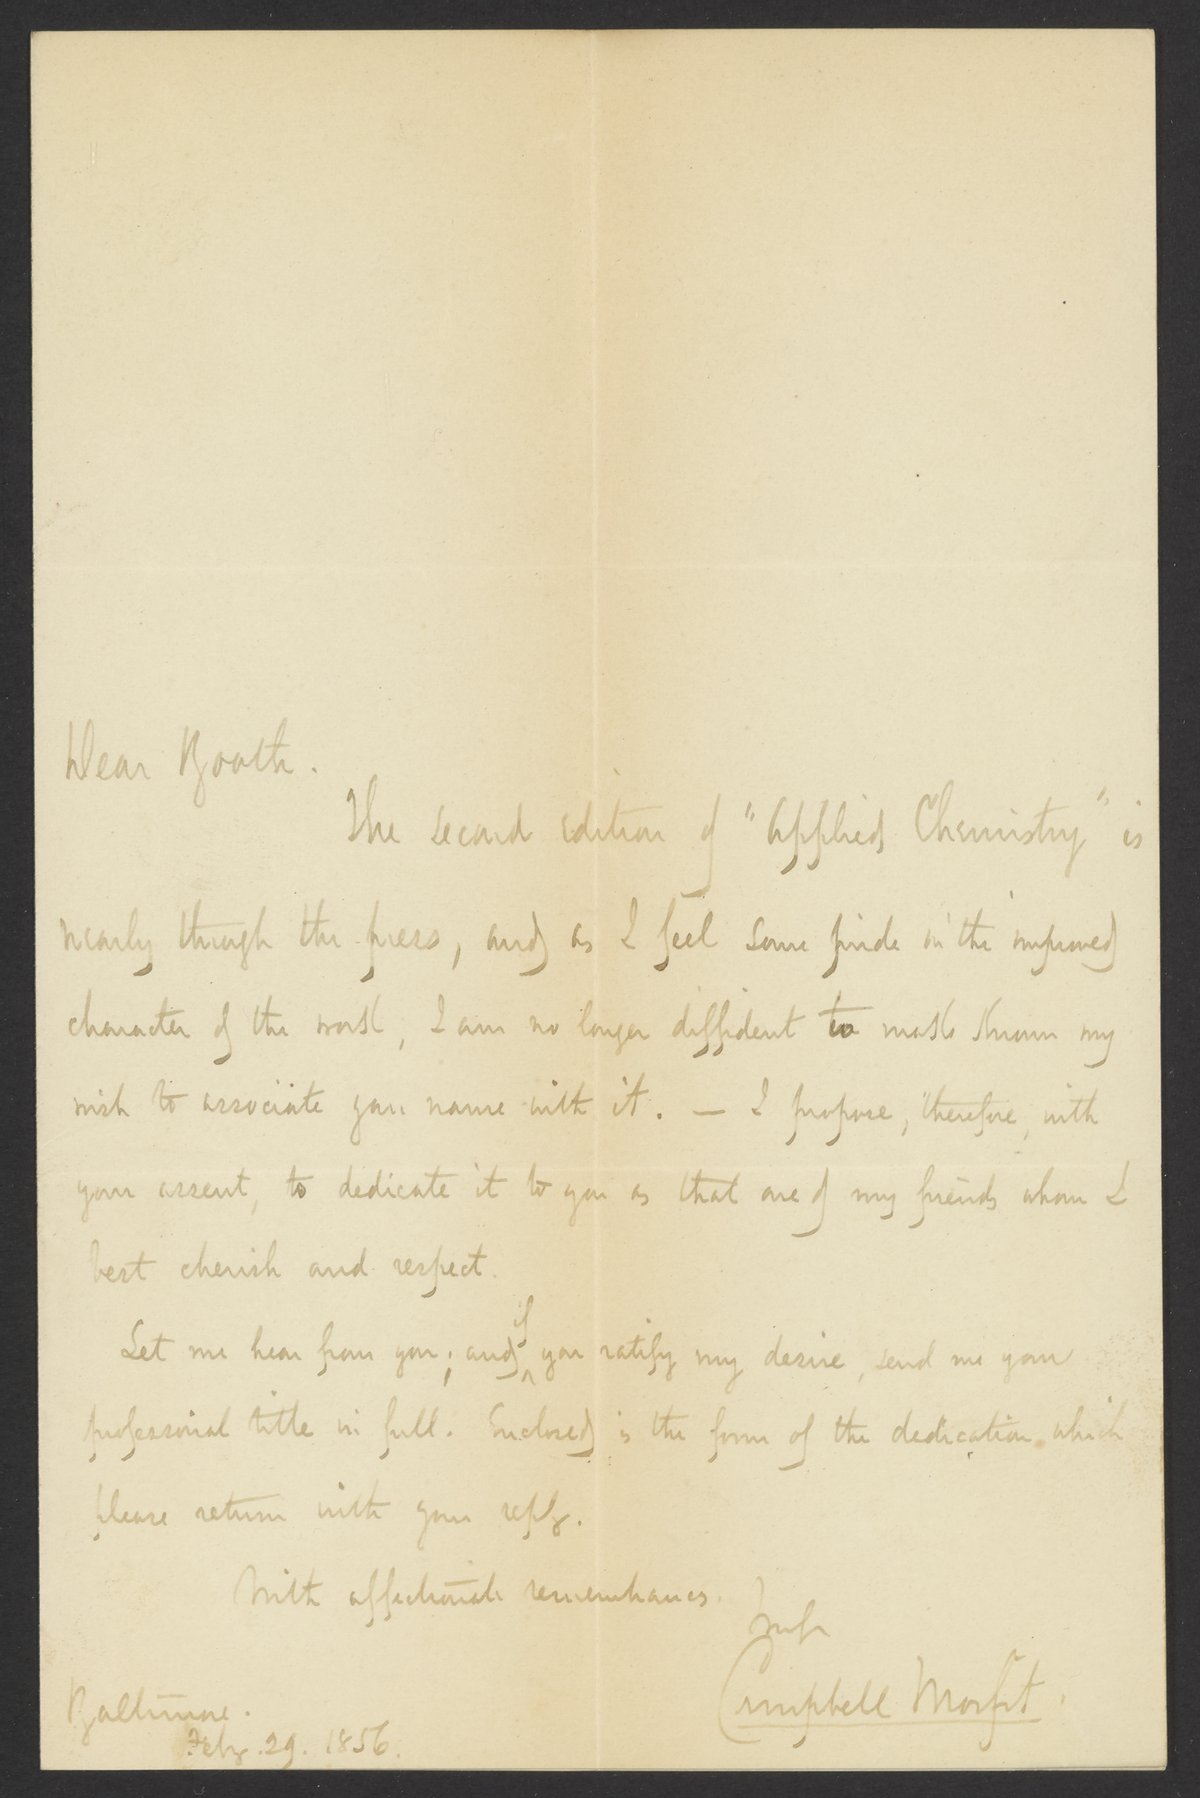 Dear Booth.
The second edition of "Applied Chemistry" is
nearly through the press, and as I feel some pride in the improved
character of the work, I am no longer diffident to make known my
wish to associate your name with it. — I propose, therefore, with
your assent, to dedicate it to you as that one of my friends whom I
best cherish and respect.
Let me hear from you; and if you ratify my desire, send me your
professional title in full. Enclosed is the form of the dedication which
please return with your reply.
With affectionate remembrances.
Campbell Morfit.
Baltimore.
Feby. 29. 1856.